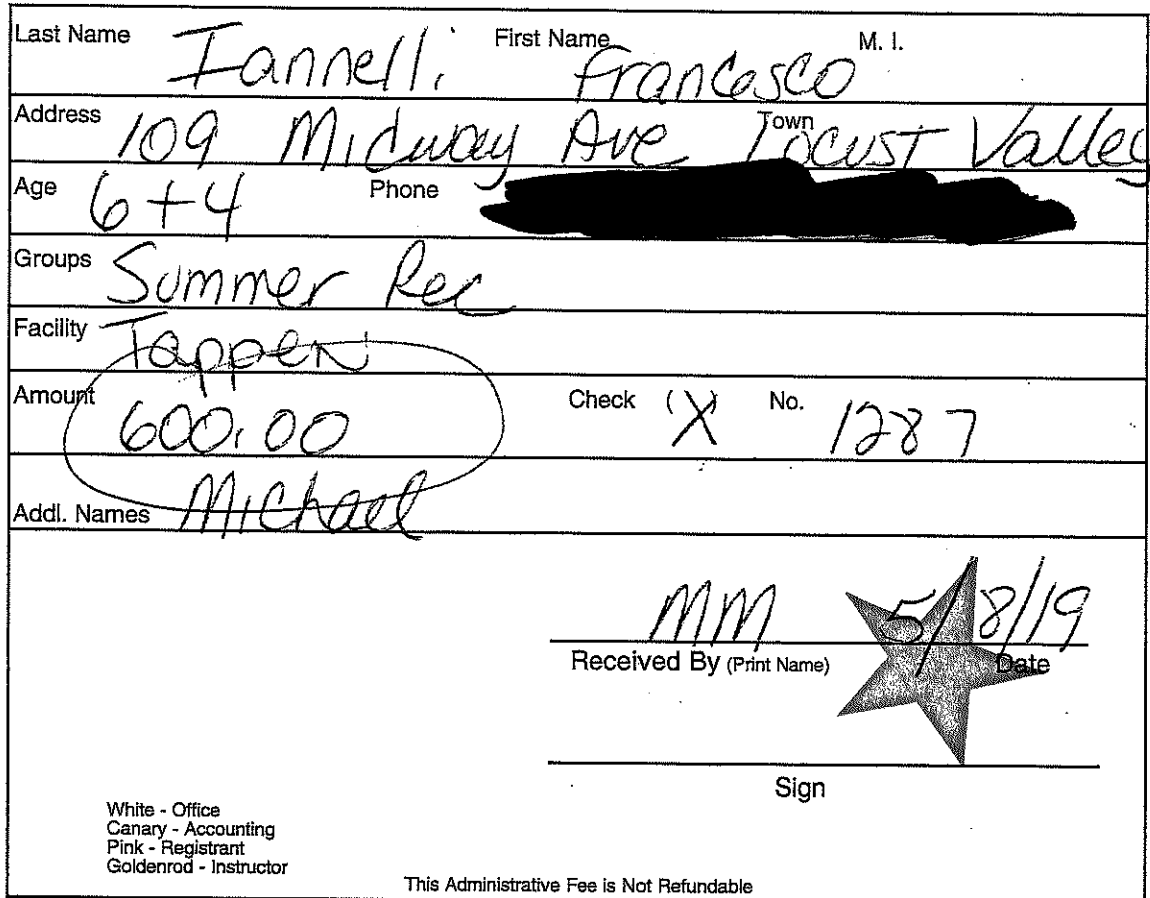 Last Name Iannelli First Name Francesco M. I.
Address 109 Midway Ave Town Locust Valley
Age 6+4 Phone
Groups Summer Rec
Facility Tappen
Amount 600.00 Check (X) No. 1287
Addl. Names Michael
MM 5/8/19
Received By (Print Name) Date
Sign
White - Office
Canary - Accounting
Pink - Registrant
Goldenrod - Instructor
This Administrative Fee is Not Refundable